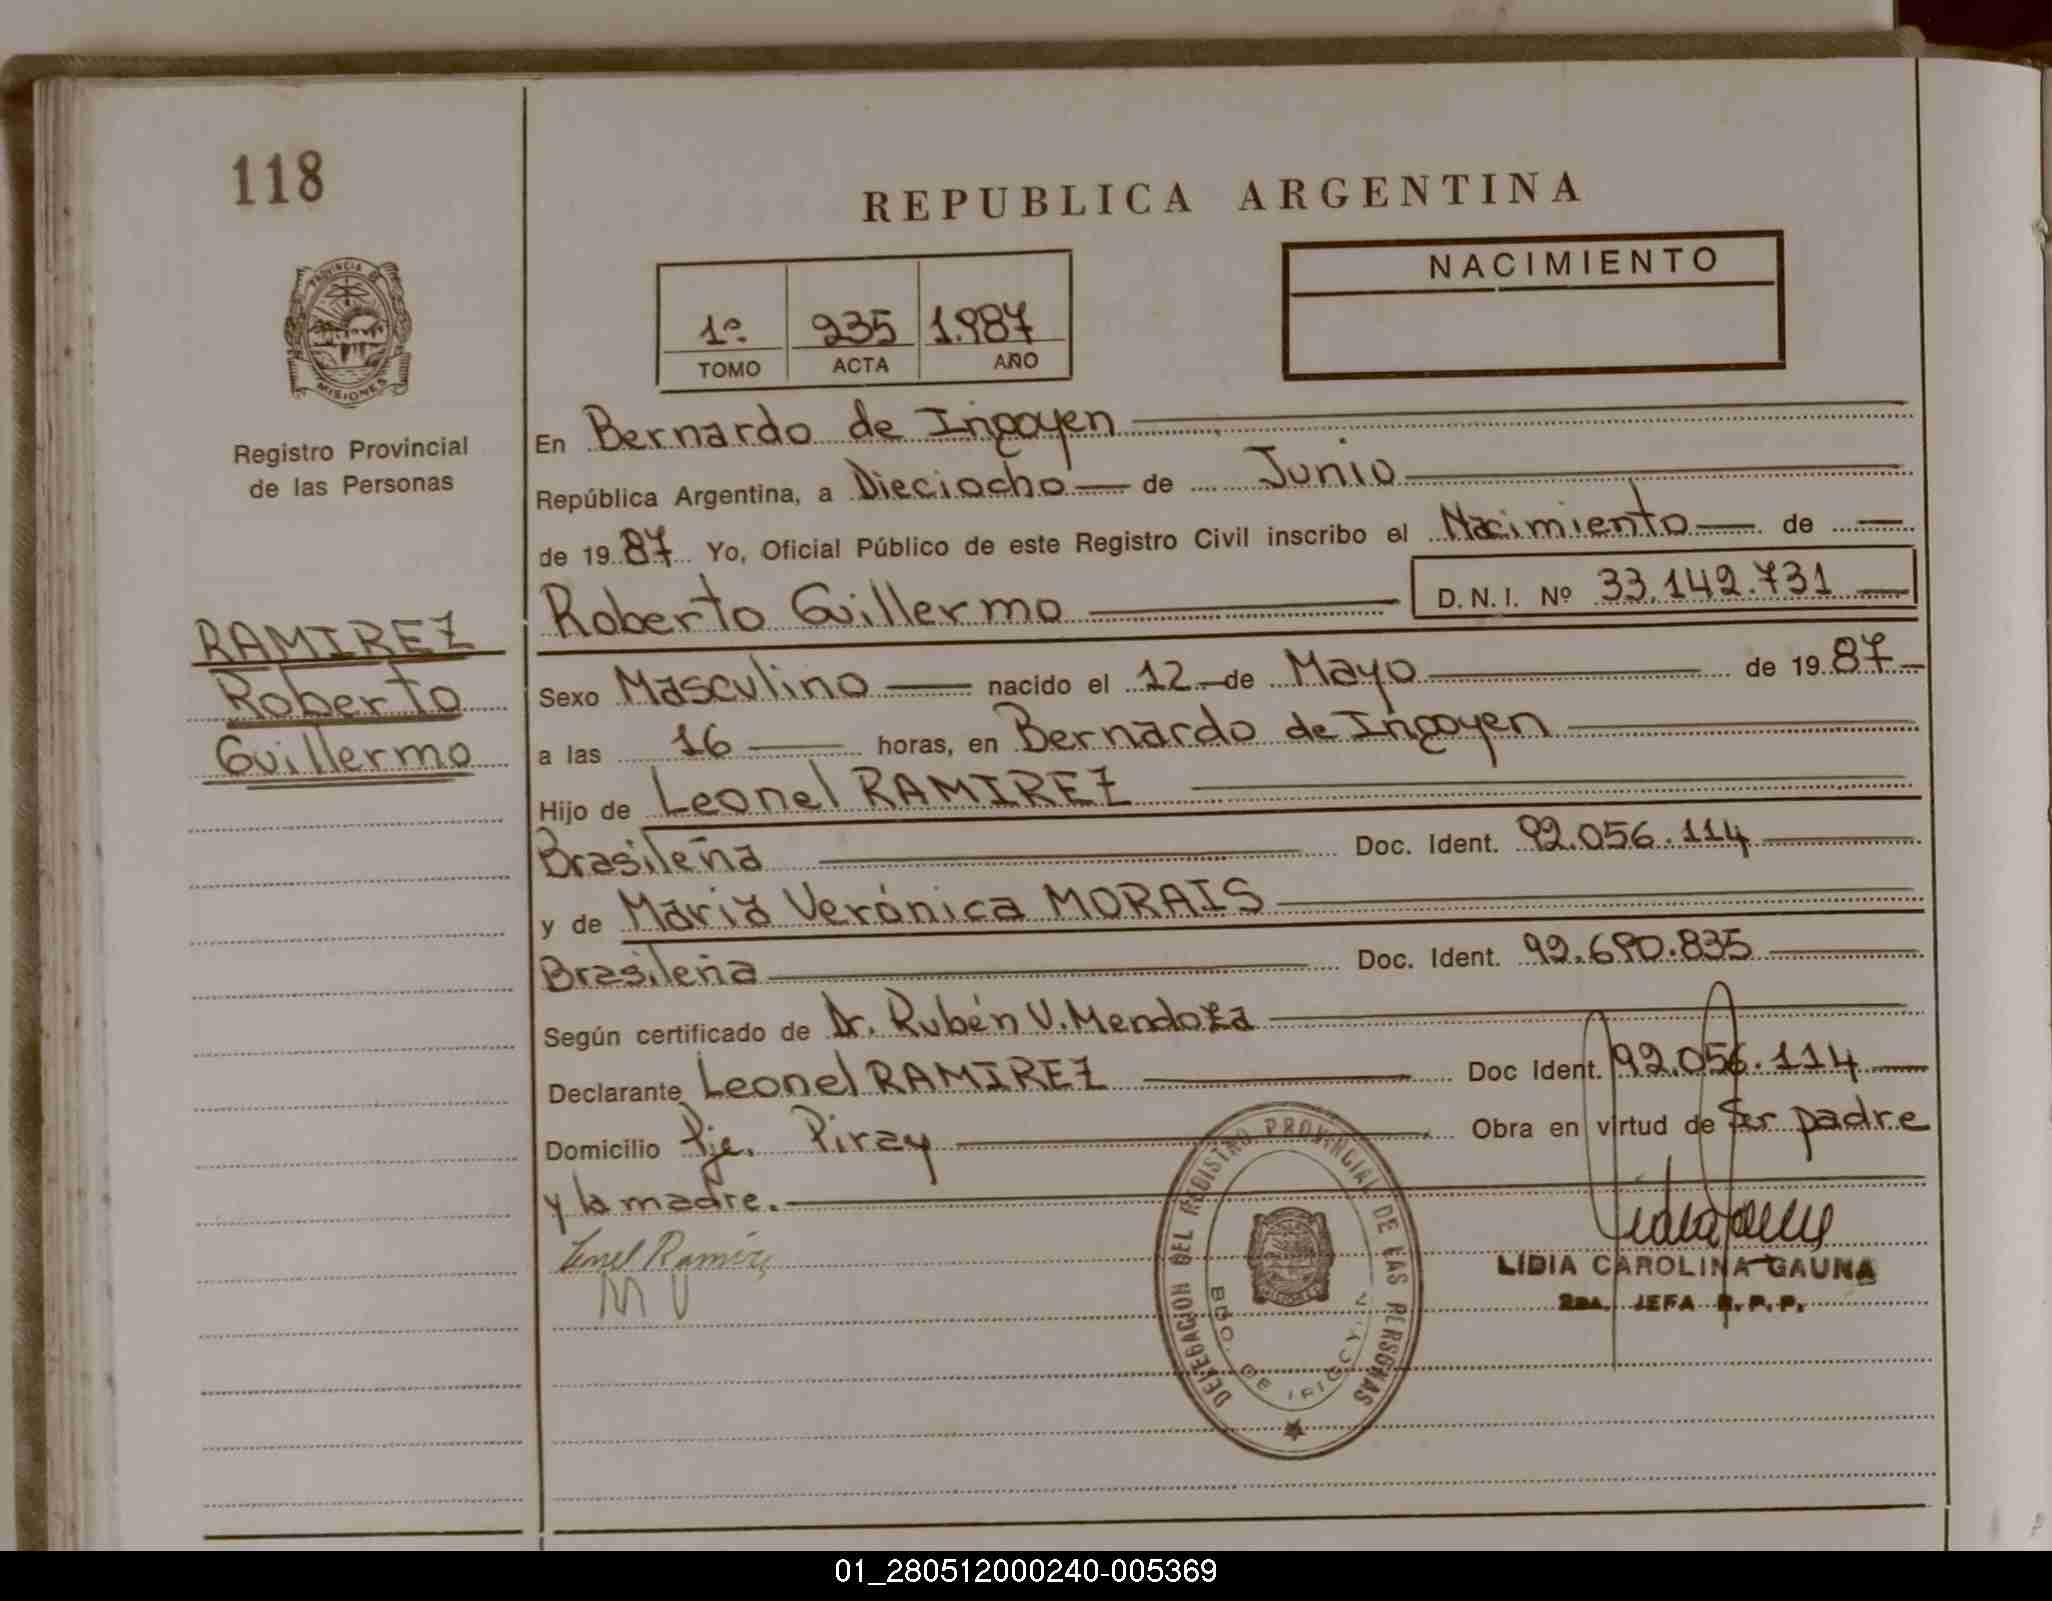 118
REPUBLICA ARGENTINA
NACIMIENTO
1º 235 1.987
TOMO ACTA AÑO
PROVINCIA DE
MISIONES
Registro Provincial
de las Personas
RAMIREZ
Roberto
Guillermo
En Bernardo de Irigoyen
República Argentina, a Dieciocho — de Junio
de 19 87 Yo, Oficial Público de este Registro Civil inscribo el Nacimiento — de —
Roberto Guillermo D.N.I. Nº 33.142.731
Sexo Masculino — nacido el 12 — de Mayo — de 19 87 —
a las 16 — horas, en Bernardo de Irigoyen
Hijo de Leonel RAMIREZ
Brasileña Doc. Ident. 92.056.114
y de María Verónica MORAIS
Brasileña Doc. Ident. 92.690.835
Según certificado de Dr. Rubén V. Mendoza
Declarante Leonel RAMIREZ Doc Ident. 92.056.114
Domicilio Pje. Piray Obra en virtud de Ser padre
y la madre.
Leonel Ramirez
M V
DELEGACION DEL REGISTRO PROVINCIAL DE LAS PERSONAS
BDO. DE IRIGOYEN
LIDIA CAROLINA GAUNA
2da. JEFA R.P.P.
01_280512000240-005369